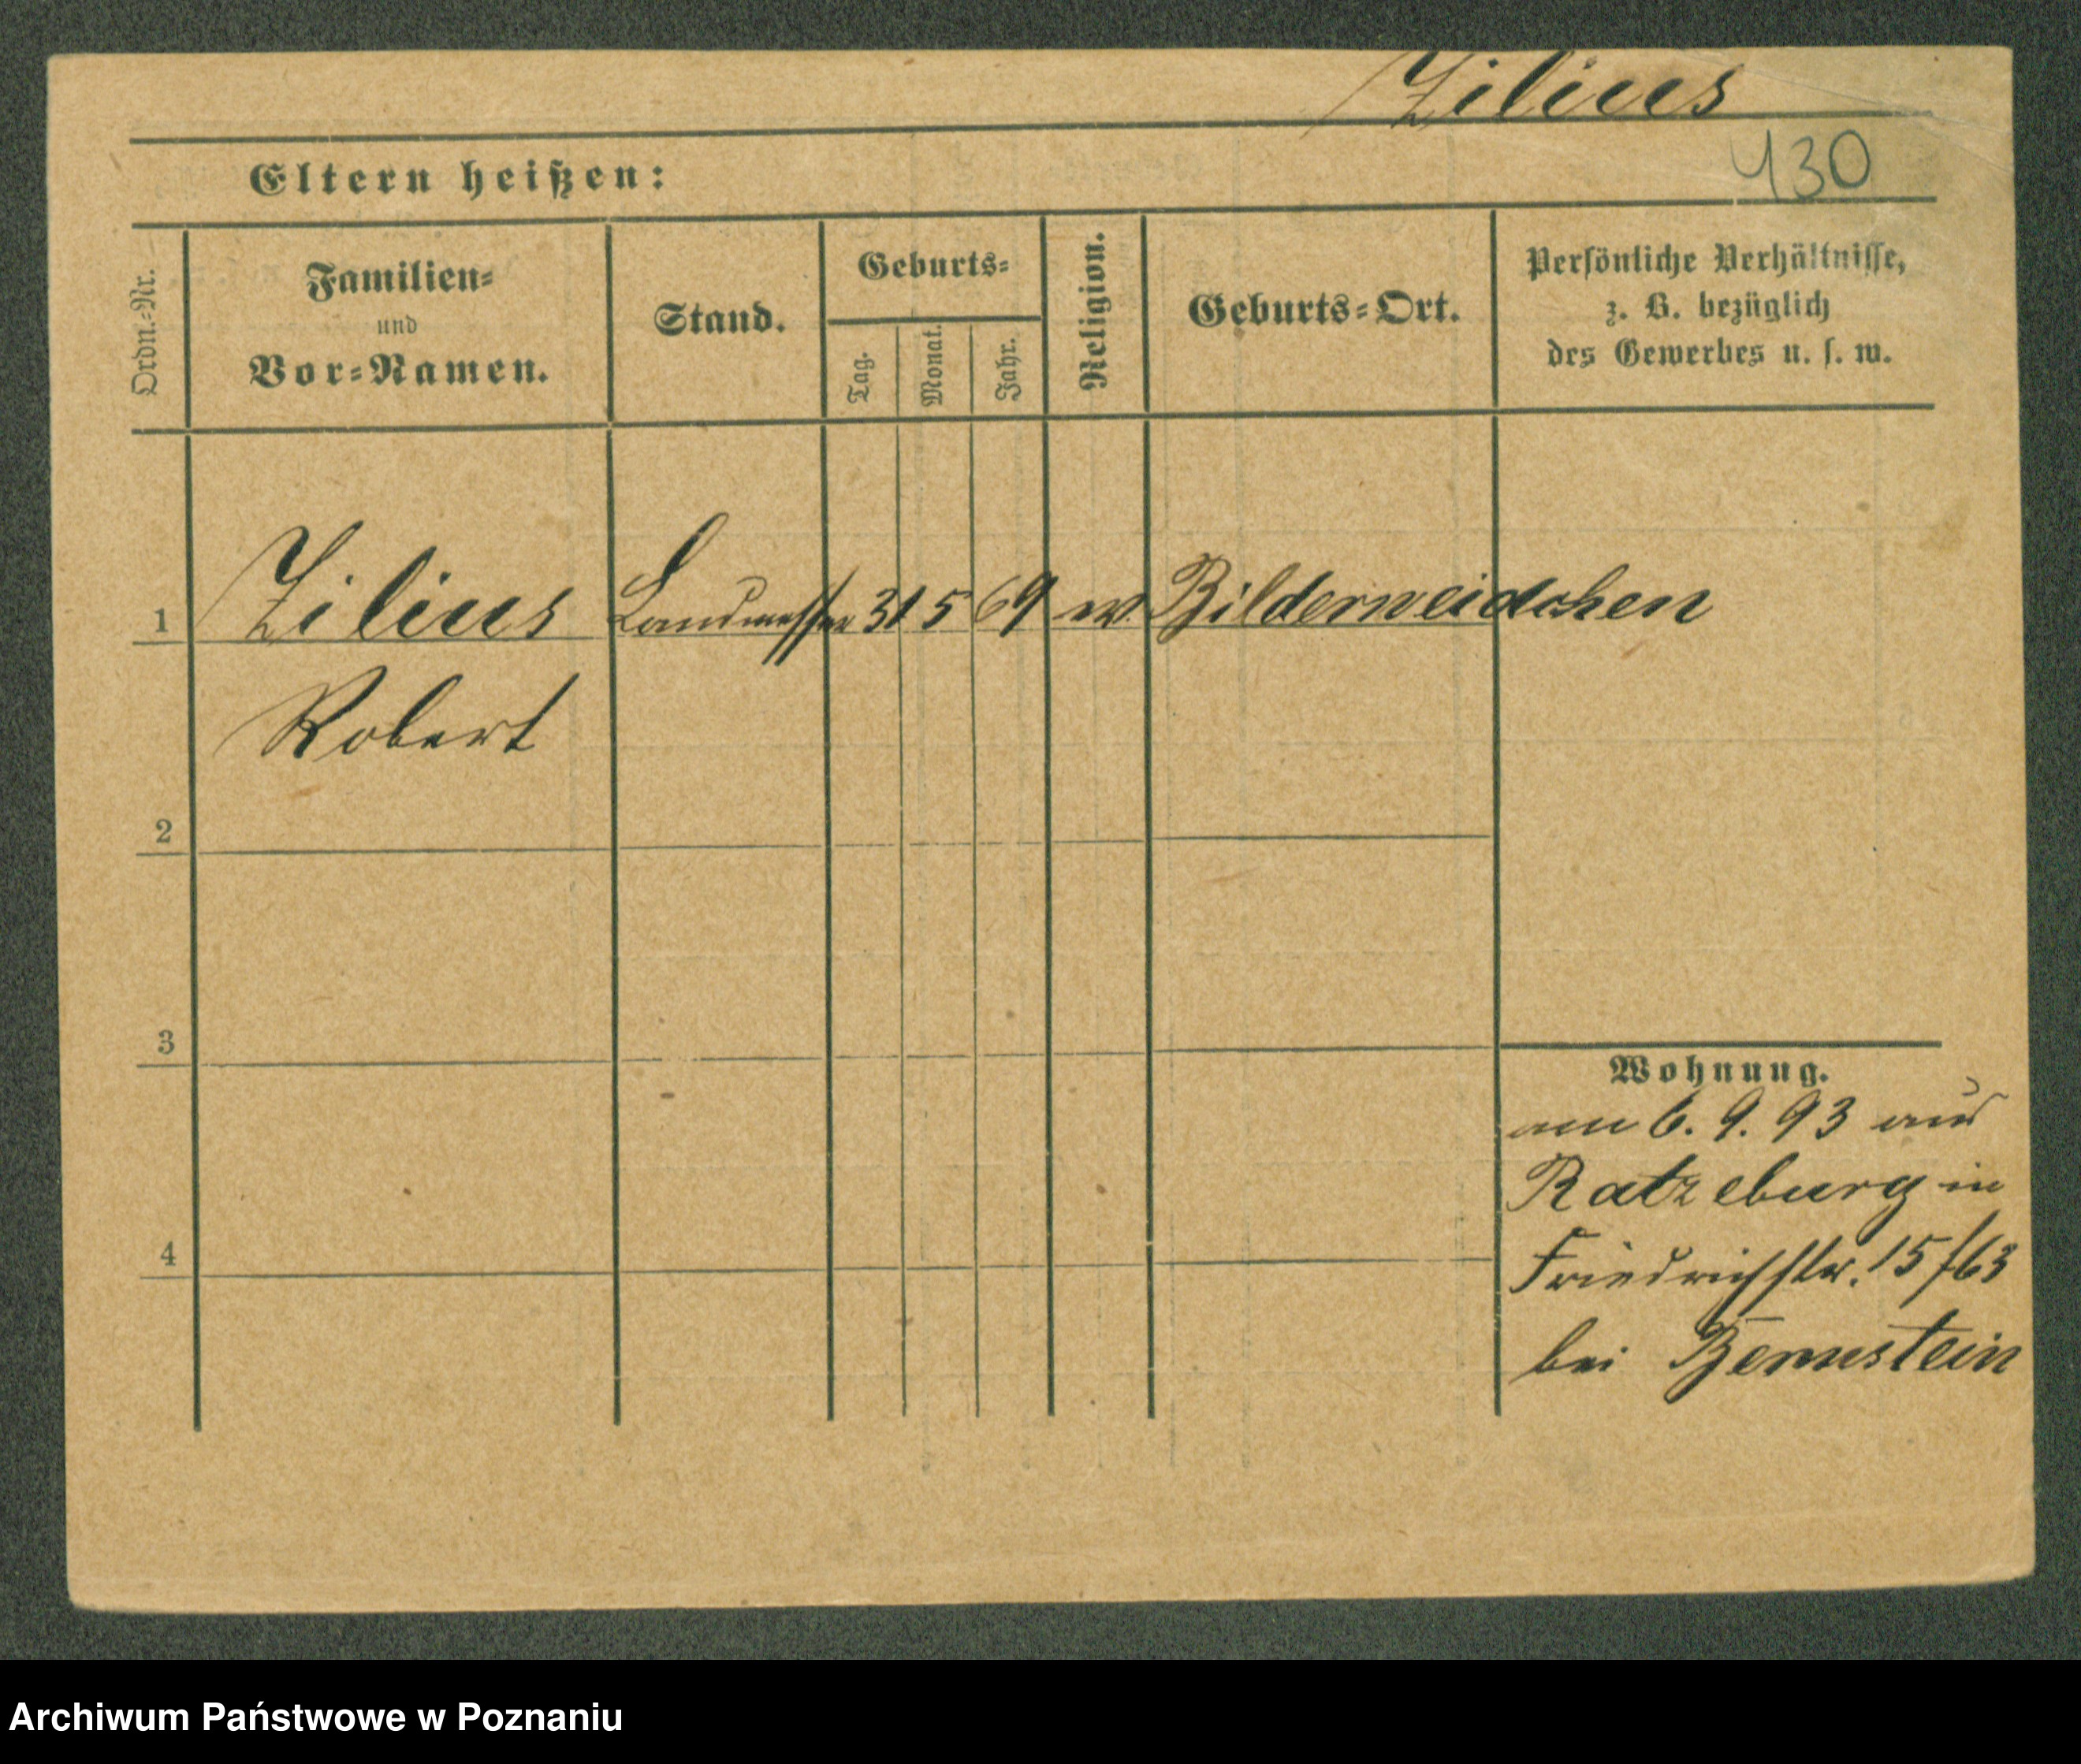 Zilius
430
Eltern heißen:
Ordn.-Nr.
Familien-
und
Vor-Namen.
Stand.
Geburts-
Tag.
Monat.
Jahr.
Religion.
Geburts-Ort.
Persönliche Verhältnisse,
z. B. bezüglich
des Gewerbes u. s. w.
1 Zilius Landmesser 31 5 69 ev. Bilderweidchen
Robert
2
3
Wohnung.
am 6. 9. 93 aus
Ratzeburg in
Friedrichstr. 15/63
4
bei Bernstein
Archiwum Państwowe w Poznaniu